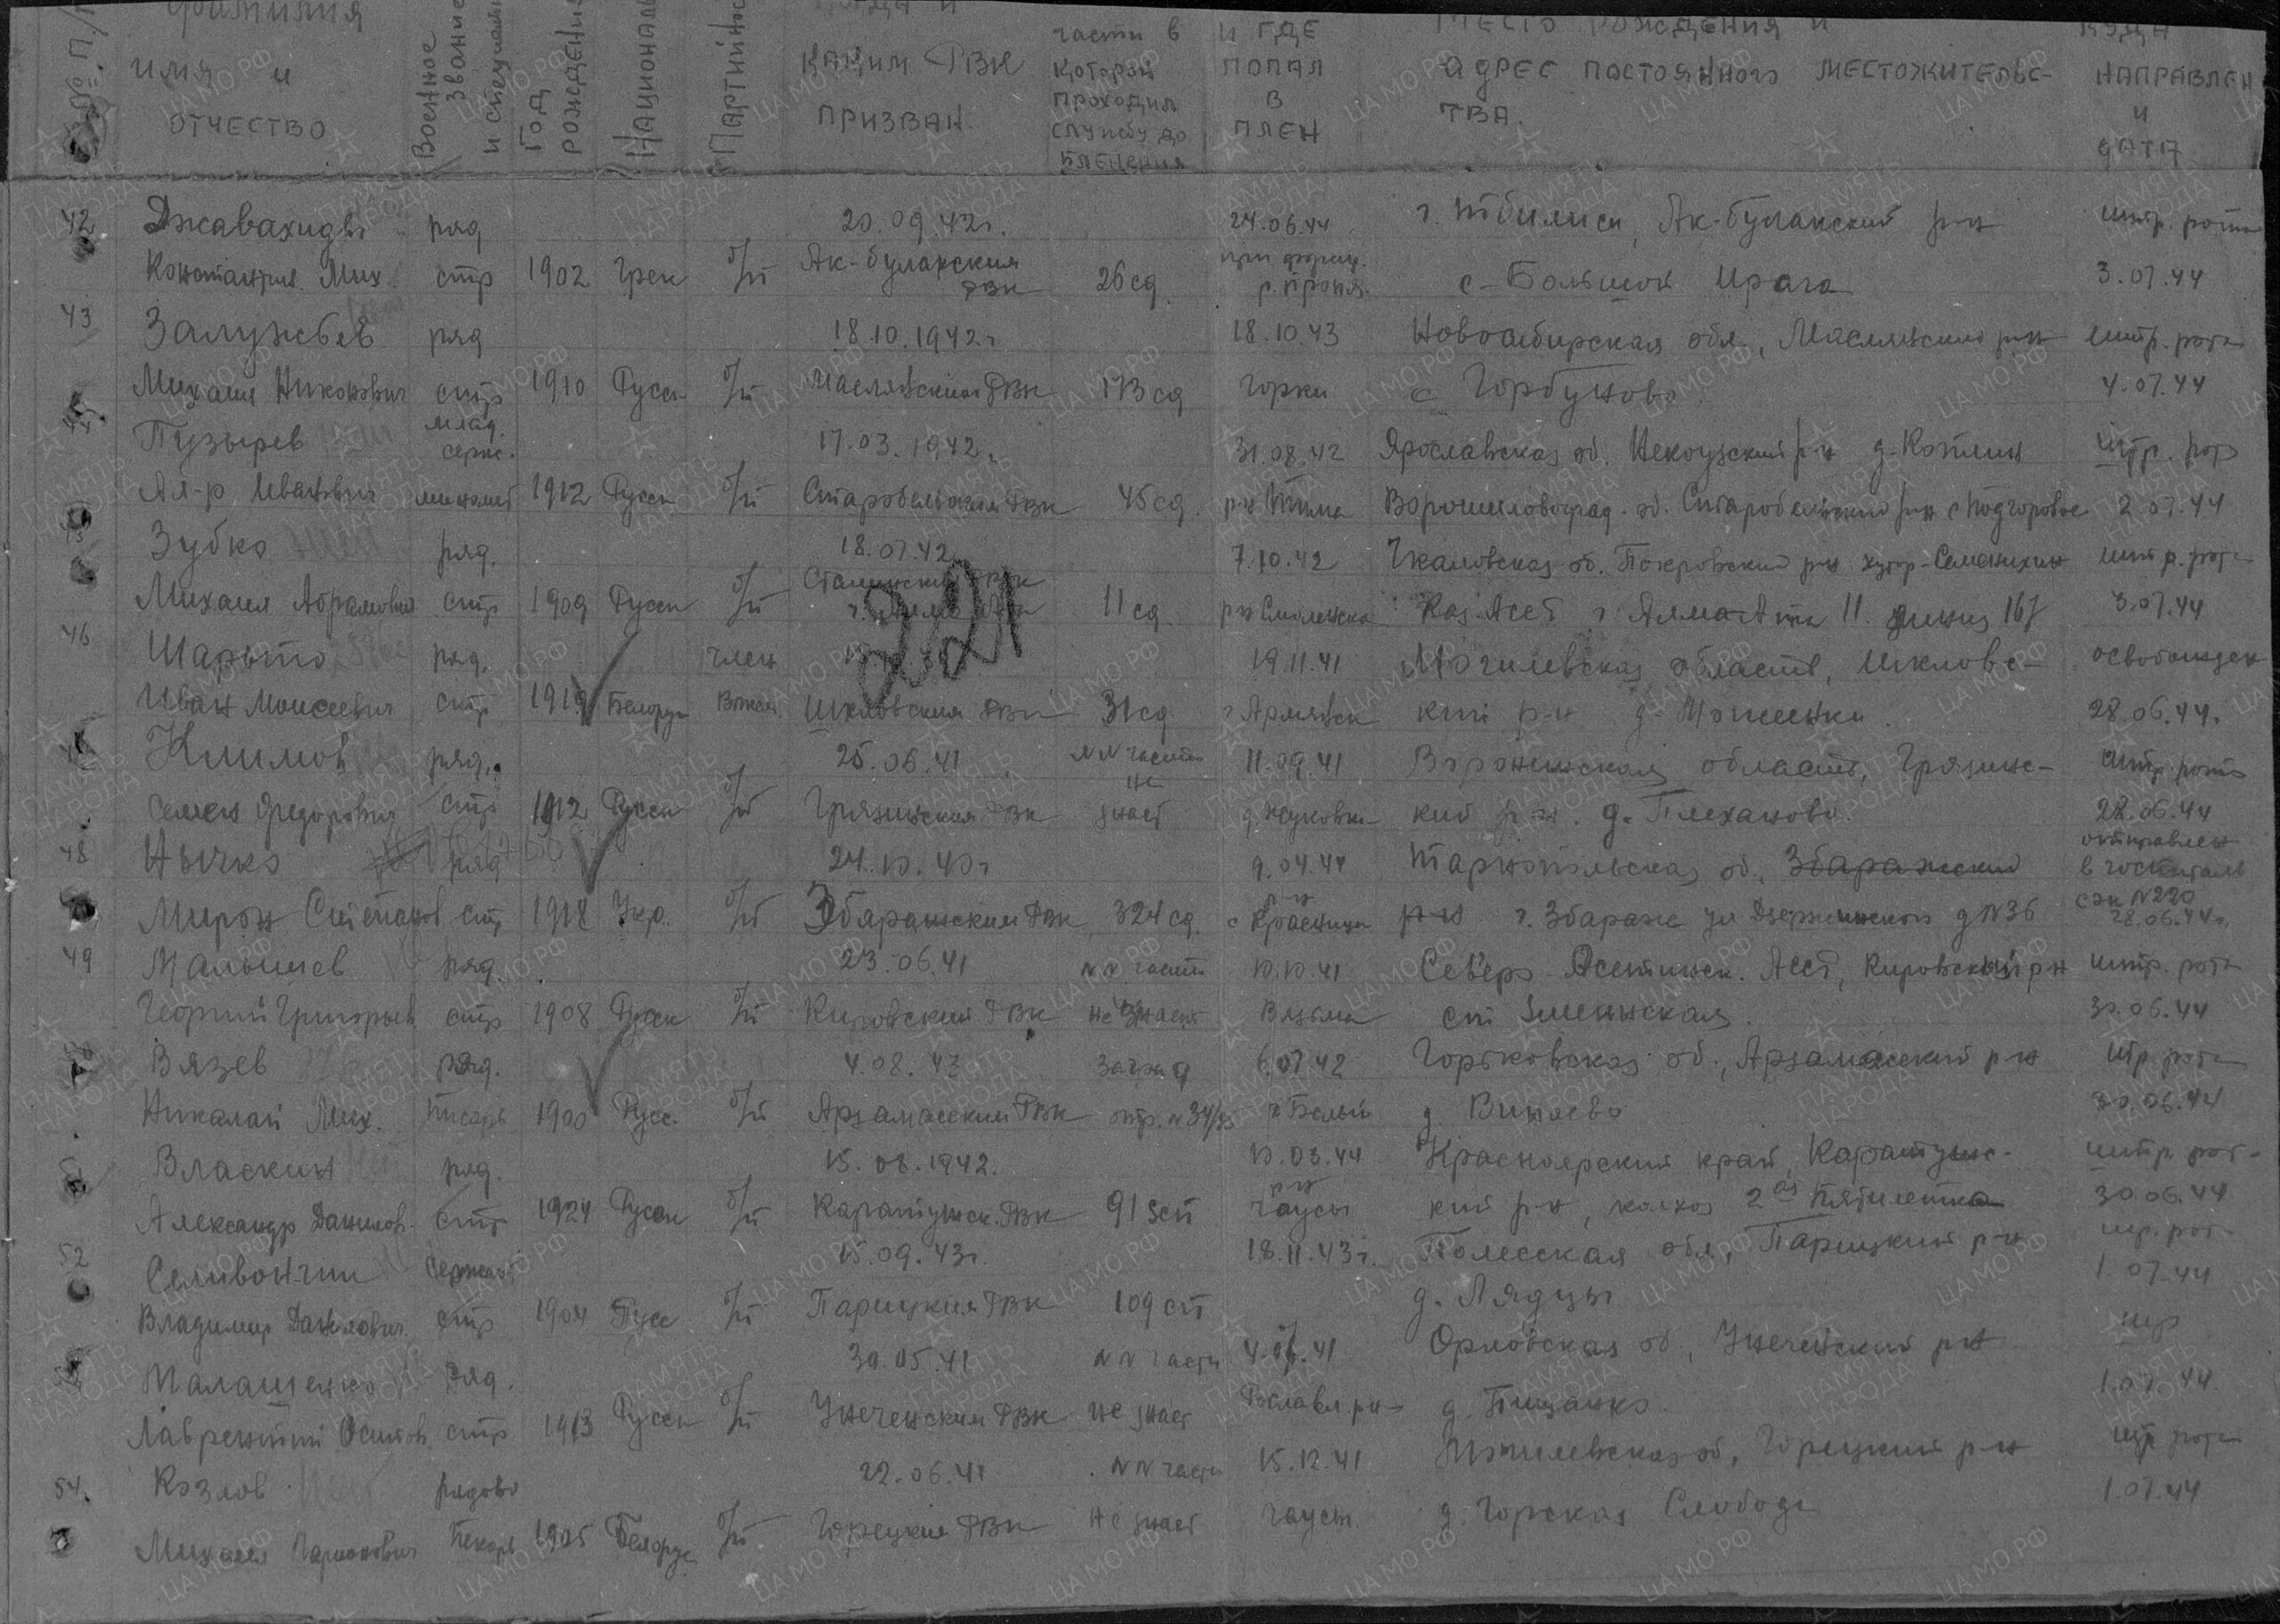 Фамилия имя и отчество
Военное звание и специальн
Год рождения
Националь
Партийнос
каким РВК призван.
части в которой проходил службу до пленения
и где попал в плен
место рождения и адрес постоянного местожительства.
куда направлен и дата
42 Джавахиди ряд 20.09.42г. 24.06.44 г. Тбилиси, Ак-булакский р-н штр. рота
Константин. Мих. стр 1902 Грек б/п Ак-булакския РВК 26 сд р. Проня с-Большой 3.07.44
43 Залужбев ряд 18.10.1942г 18.10.43 Новосибирская обл, Маслянский р-н штр. рота
Михаил Никонович стр 1910 Русск б/п Маслянским РВК 173 сд Горки с Горбуново 4.07.44
44 Пузырев млад. серж. 17.03.1942г 31.08.42 Ярославская об. Некоузский р-н д-Котлин штр. рота
Ал-р Иванович миномет 1912 Русск б/п Старобельским РВК 45 сд. р-н Тима Ворошиловоград. об. Старобельский р-н с Подгоровое 2.07.44
45 Зубко ряд. 18.07.42 7.10.42 Чкаловская об. Покровский р-н хутор-Семенихин штр. рота
Михаил Абрамович стр 1909 Русск б/п Сталинский РВК г. Алма Ата 11 сд р-н Смоленска Каз. АССТ г Алма Ата 11 линия 167 3.07.44
221
46 Шарыпо ряд. член 19.11.41 Могилевская область, Шкловс- освобожден
Иван Моисеевич стр 1919 Белорус Шкловския РВК 31 сд г Армянск кий р-н д- 28.06.44г.
47 Климов ряд. 25.06.41 NN части не 11.09.41 Воронежская область, Грязинс- штр рота
Семен Федорович стр 1912 Русск б/п Грязинския РВК знает д. Жуковка кий р-н. д. Плеханово. 28.06.44
48 Нычко ряд 24.10.40г 9.04.44 Тарнопольская об, Збаражский отправлен в госпиталь
Мирон Степанов стр 1918 Укр. б/п Збаражским РВК 324 сд. р-н г. Збараж ул Дзержинского д N36 сэг N220 28.06.44г.
49 Малышев ряд. 23.06.41 NN части 10.10.41 Северо-Осетинск. АССТ, Кировский р-н штр. рота
Георгий Григорьев стр 1908 Русск б/п Кировский РВК не знает Вязьма ст Змейнская. 30.06.44
50 Вязев ряд. 4.08.43 заград 6.07.42 Горьковская об., Арзамасский р-н штр. рота
Николай Мих. писарь 1900 Русс. б/п Арзамасским РВК отр. г Белый д. Виняево 30.06.44
51 Власкин ряд. 15.08.1942. 10.03.44 Красноярский край, Каратузс- штр рота
Александр Данилов. стр 1924 Русск б/п Каратузск. РВК 91 зсп р-н Чаусы кий р-н, колхоз 2ая пятилетка 30.06.44
52 Селивончик сержант 15.09.43г. 18.11.43г. Полесская обл, Парицкий р-н штр. рота
Владимир Данилович стр 1904 Русс б/п Парицкия РВК 109 сп д. Лядцы 1.07.44
53 Малащенко ряд. 30.05.41 NN части 41 Орловская об, Унеченский р-н штр
Лаврентий Осипов. стр 1913 Русск б/п Унеченским РВК не знает Рославл р-н д. Пищанко. 1.07.44
54. Козлов рядово 22.06.41 NN части 15.12.41 Могилевская об, Горецкий р-н штр рота
Михаил пекарь 1905 Белорус б/п Горецкия РВК не знает Чаусы д. Горская Слобода 1.07.44
ПАМЯТЬ НАРОДА
ЦА МО РФ